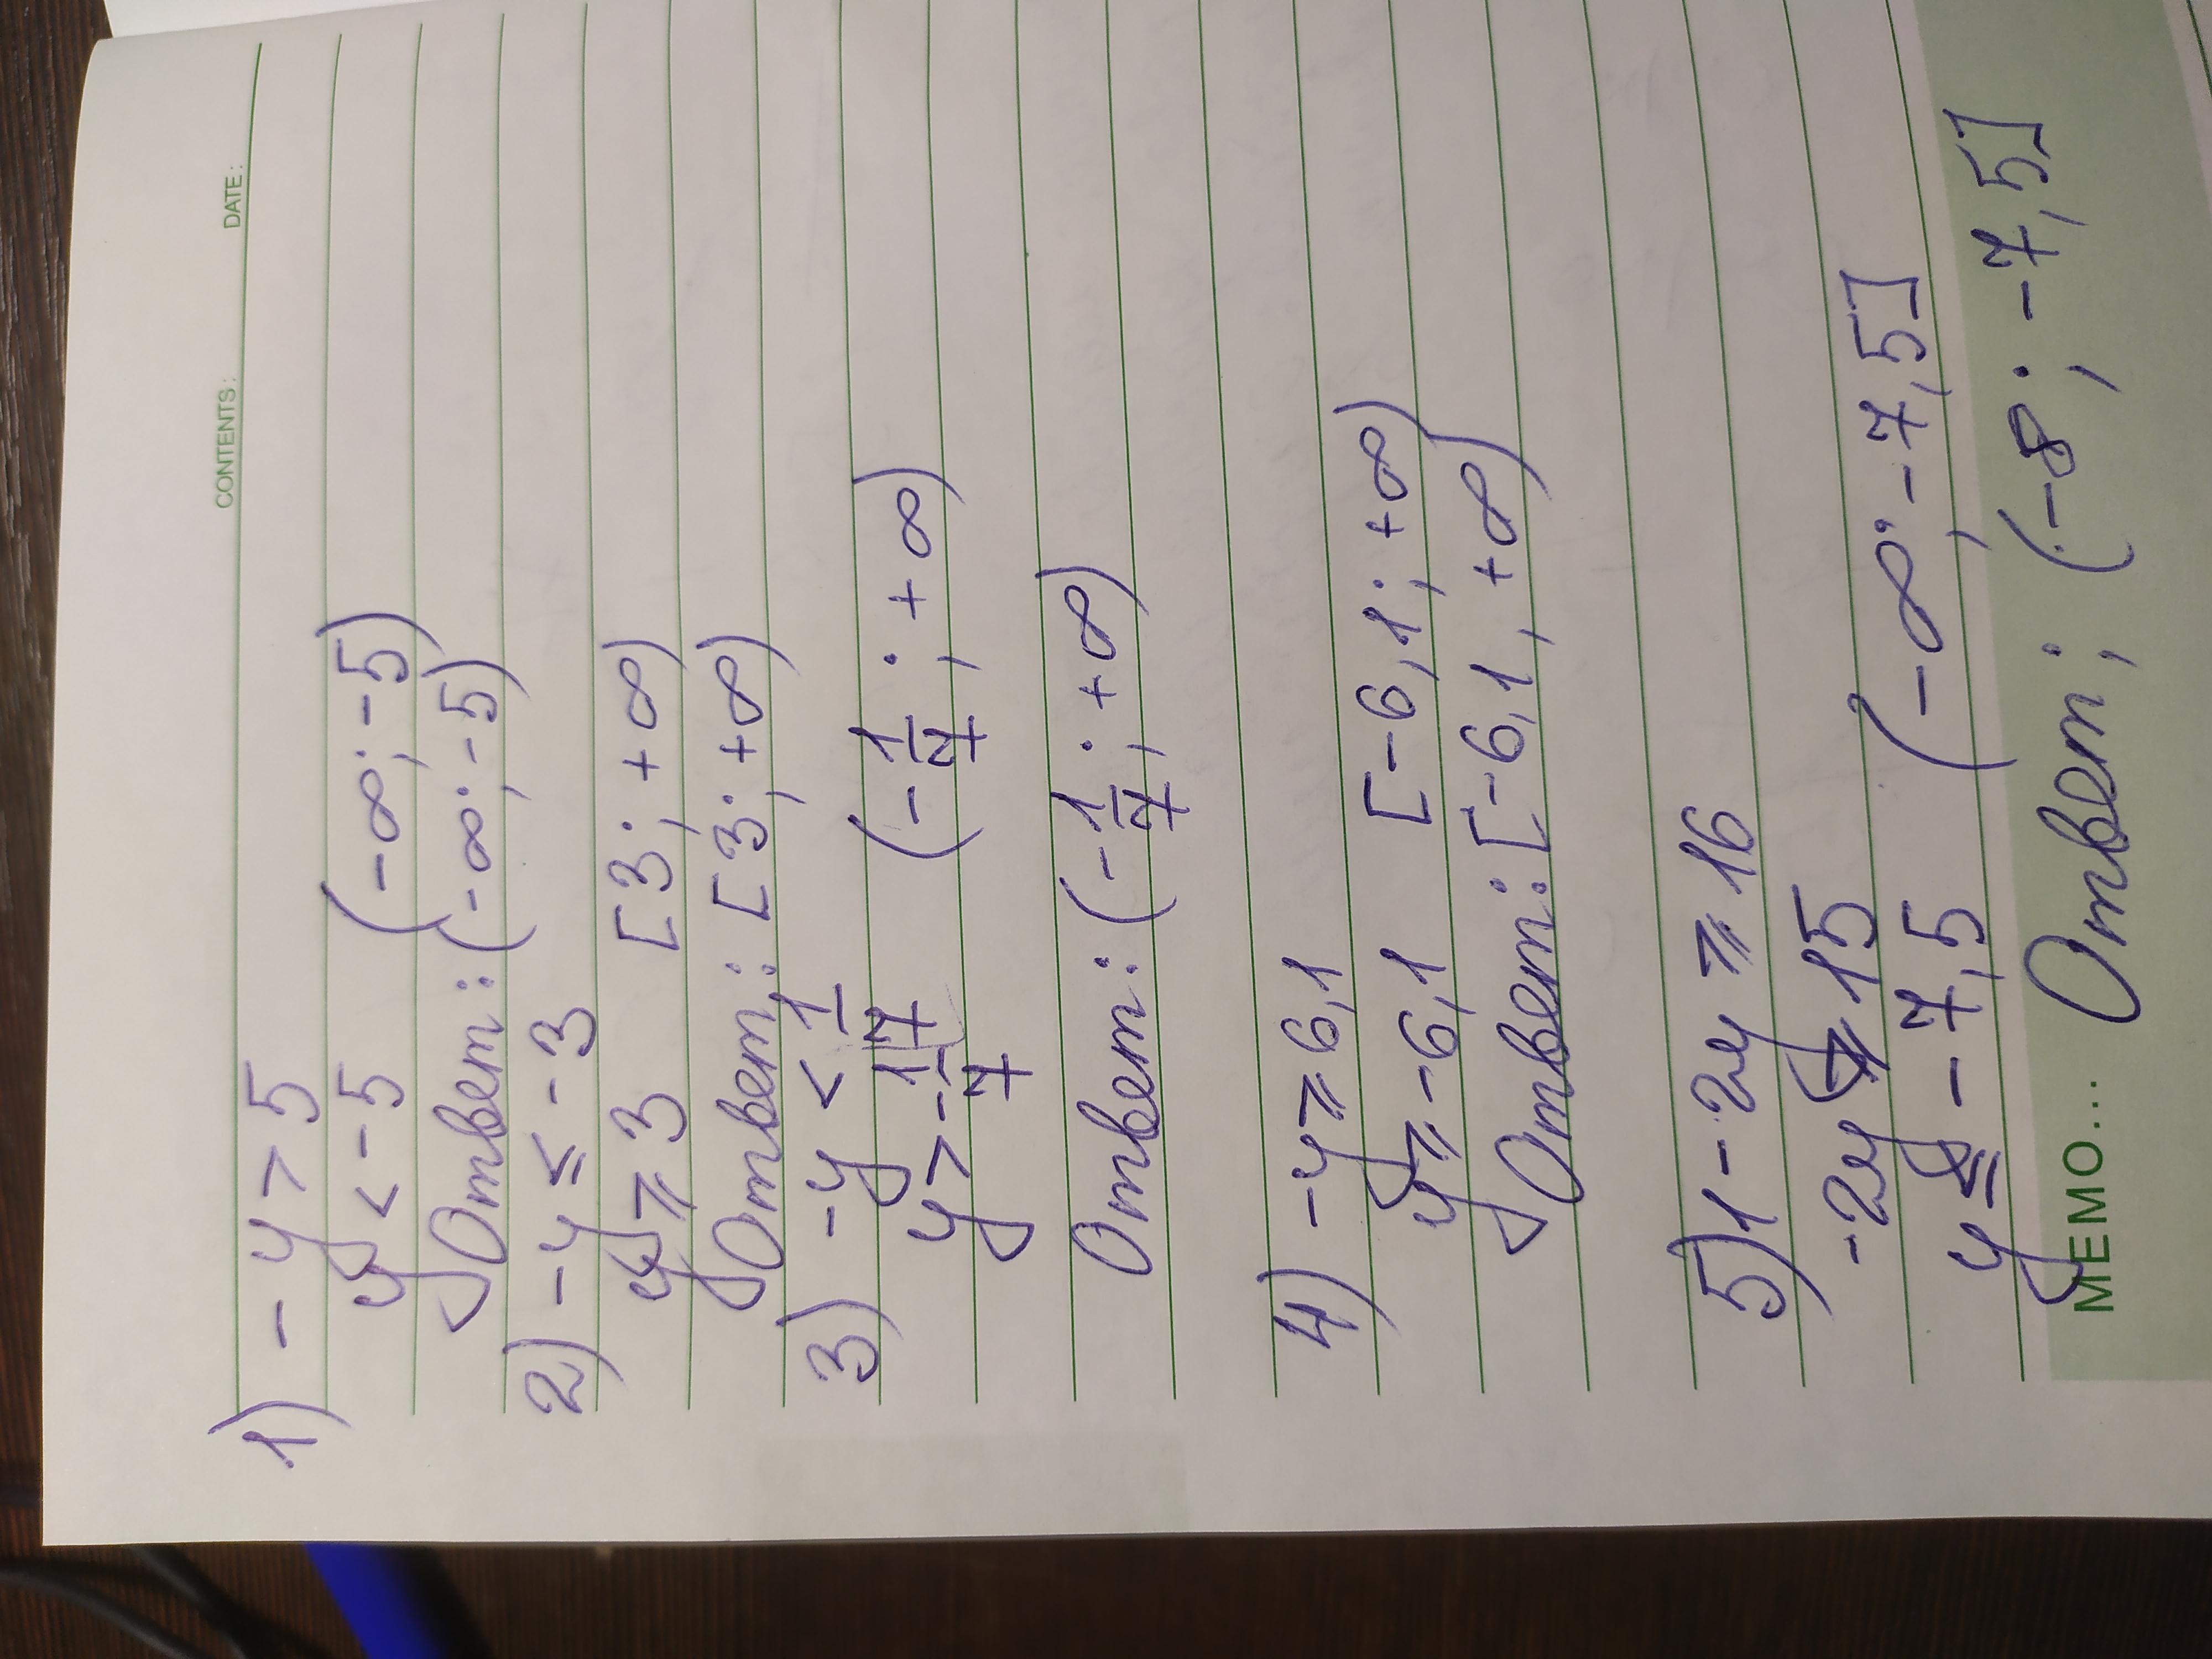 CONTENTS: DATE:
1) -y > 5
y < -5 (-∞; -5)
Ответ: (-∞; -5)
2) -y ≤ -3
y ⩾ 3 [3; +∞)
Ответ: [3; +∞)
3) -y < 1/7
y > -1/7 (-1/7; +∞)
Ответ: (-1/7; +∞)
4) -y ⩾ 6,1
y ⩾ -6,1 [-6,1; +∞)
Ответ: [-6,1, +∞)
5) 1 - 2y ⩾ 16
-2y ⩾ 15
y ≤ -7,5 (-∞; -7,5]
MEMO... Ответ; (-∞; -7,5]